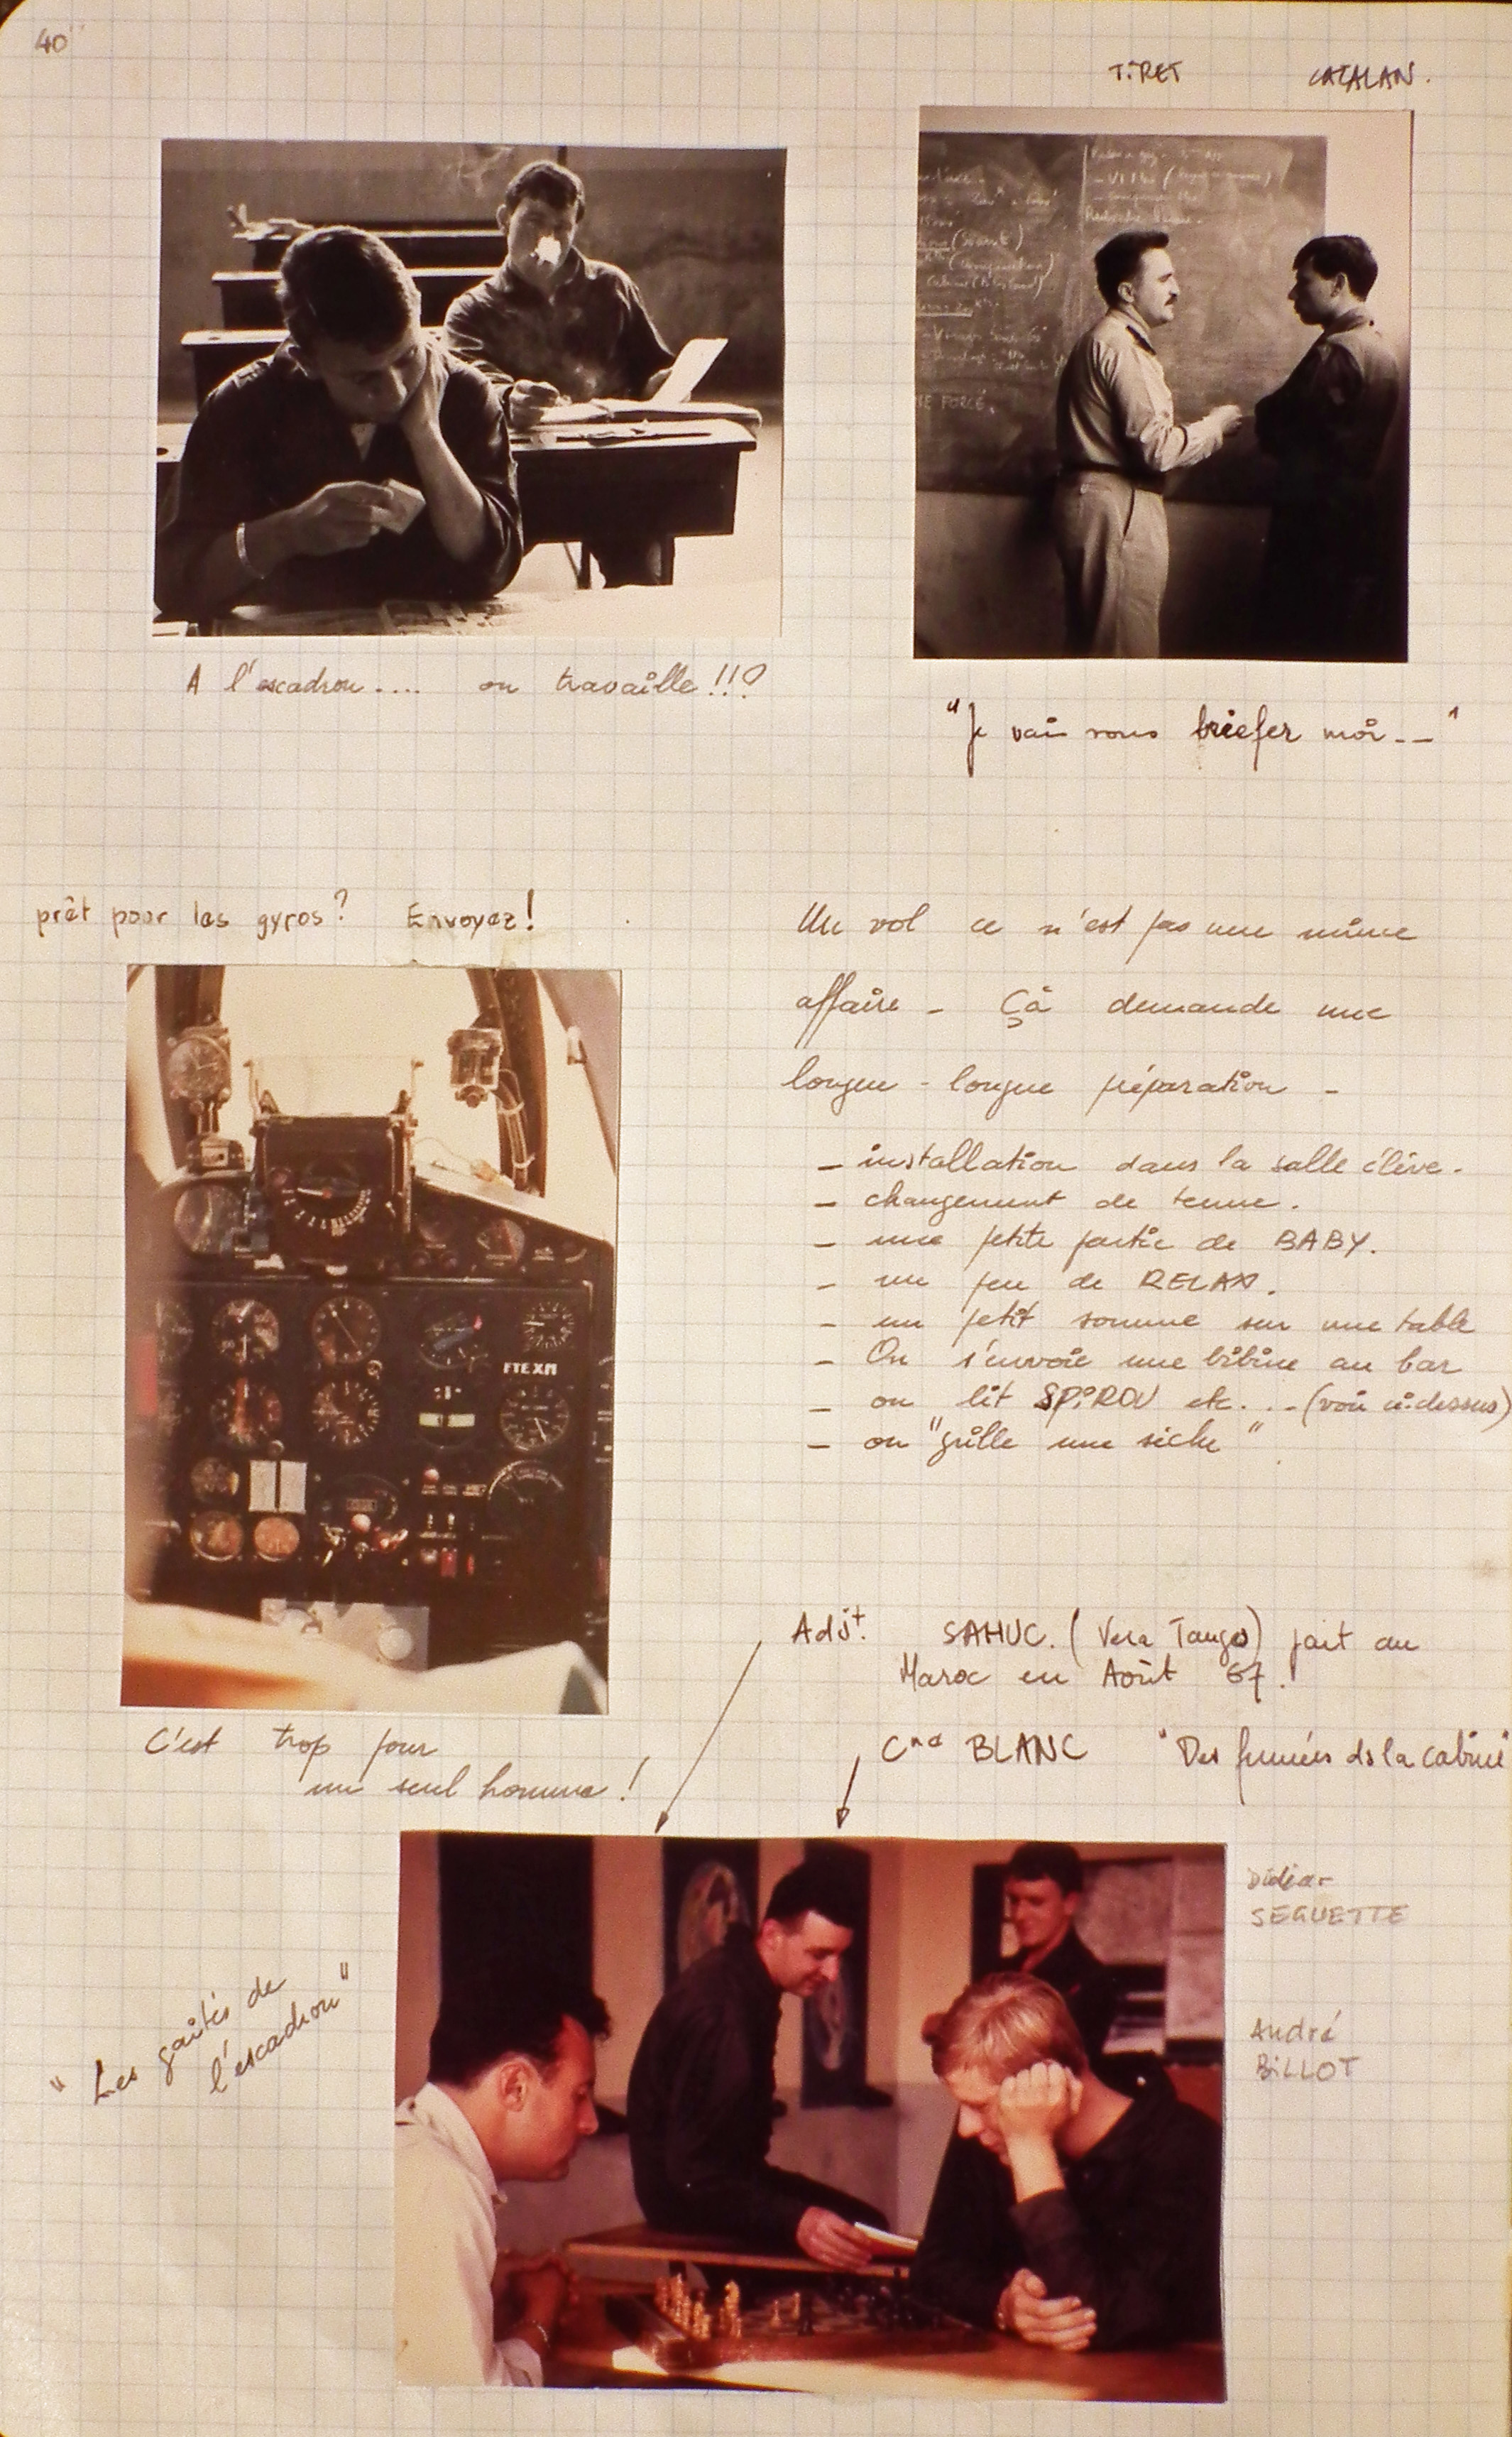 40
TiRET CATALAN.
A l'escadron.... on travaille!!!
"Je vais vous briefer moi--"
prêt pour les gyros? Envoyez!
Un vol ce n'est pas une mince
affaire - Çà demande une
longue - longue préparation -
- installation dans la salle élève.
- changement de tenue.
- une petite partie de BABY.
- un jeu de RELAX.
- un petit somme sur une table
- On s'envoie une bibine au bar
- on lit SPiROU etc... (voir ci-dessus)
- on "grille une sèche"
FTEXM
C'est trop pour
un seul homme!
Adjt. SAHUC. (Vera Tango) part au
Maroc en Août 67.!
Cne BLANC "Des fumées ds la cabine"
Didier
SEGUETTE
André
BiLLOT
"Les gaités de
l'escadron"